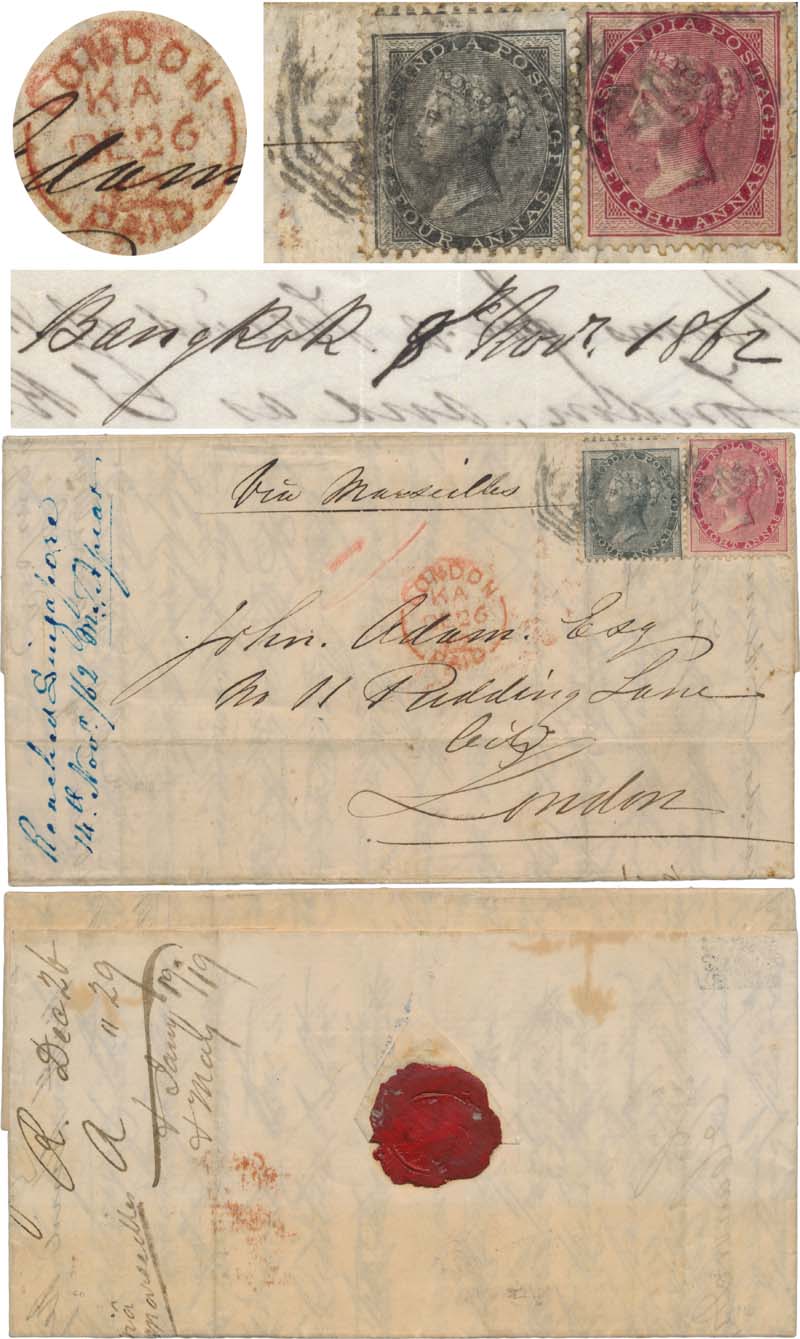 LONDON
KA
DE 26
PAID
EAST INDIA POSTAGE
FOUR ANNAS
EAST INDIA POSTAGE
EIGHT ANNAS
Bangkok. 8th Novr. 1862
Via Marseilles
EAST INDIA POSTAGE
FOUR ANNAS
EAST INDIA POSTAGE
EIGHT ANNAS
LONDON
KA
DE 26
PAID
John. Adam. Esq
No 11 Pudding Lane
City
London
Reached Singapore
14th Novr /62
R. Dec 26
A " 29
& Jany
& May 19
via
marseilles